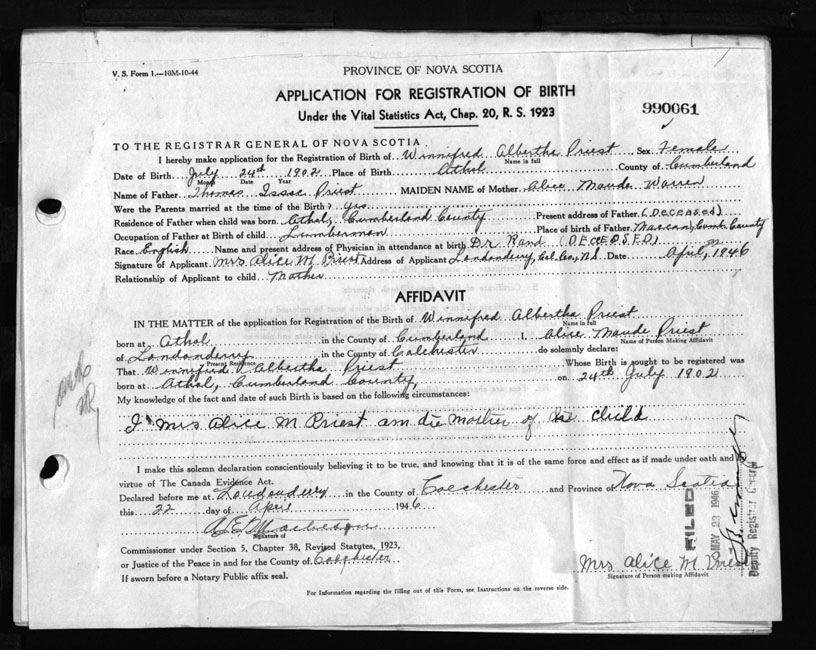 V. S. Form 1.—10M-10-44
PROVINCE OF NOVA SCOTIA
APPLICATION FOR REGISTRATION OF BIRTH
Under the Vital Statistics Act, Chap. 20, R. S. 1923
990061
TO THE REGISTRAR GENERAL OF NOVA SCOTIA
I hereby make application for the Registration of Birth of Winnifred Albertha Priest Sex Female
Name in full
Date of Birth July 24th 1902 Place of Birth Athol County of Cumberland
Month Date Year
Name of Father Thomas Isaac Priest MAIDEN NAME of Mother Alice Maude Warren
Were the Parents married at the time of Birth? Yes
Residence of Father when child was born Athol, Cumberland County Present address of Father (Deceased)
Occupation of Father at Birth of child Lumberman Place of birth of Father Maccan, Cumb. County
Race English Name and present address of Physician in attendance at birth Dr Rand (DECEDSED)
Signature of Applicant Mrs Alice M Priest Address of Applicant Londonderry, Col. Co., N.S. Date April, 1946
Relationship of Applicant to child Mother
AFFIDAVIT
IN THE MATTER of the application for Registration of the Birth of Winnifred Albertha Priest
Name in full
born at Athol in the County of Cumberland I, Alice Maude Priest
Name of Person Making Affidavit
of Londonderry in the County of Colchester do solemnly declare:
Present Residence
That Winnifred Albertha Priest Whose Birth is sought to be registered was
born at Athol, Cumberland County, on 24th July 1902
My knowledge of the fact and date of such Birth is based on the following circumstances:
I Mrs Alice M Priest am the mother of the child
I make this solemn declaration conscientiously believing it to be true, and knowing that it is of the same force and effect as if made under oath and by
virtue of The Canada Evidence Act.
Declared before me at Londonderry in the County of Colchester and Province of Nova Scotia
this 22 day of April 1946
Signature of
Commissioner under Section 5, Chapter 38, Revised Statutes, 1923,
or Justice of the Peace in and for the County of Colchester
If sworn before a Notary Public affix seal.
Mrs Alice M Priest
Signature of Person making Affidavit
FILED
MAY 23 1946
Deputy Registrar General
For Information regarding the filling out of this Form, see Instructions on the reverse side.